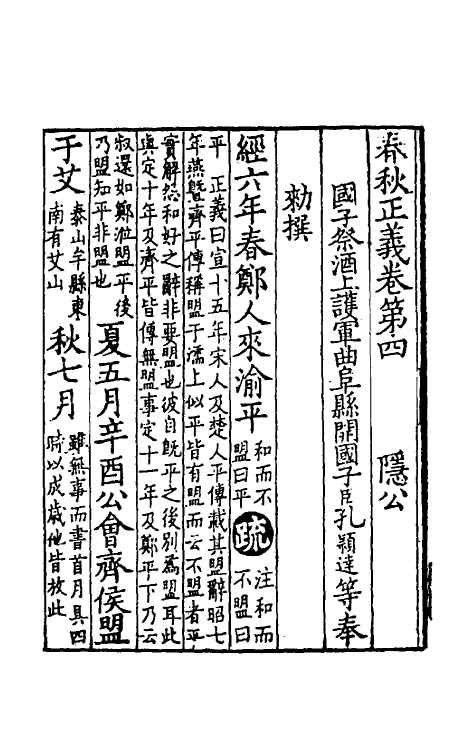 春秋正義卷第四 隱公
國子祭酒上護軍曲阜縣開國子臣孔穎達等奉
勑撰
經六年春鄭人來渝平
和而不
盟曰平
疏
注和而
不盟曰
平 正義曰宣十五年宋人及楚人平傳載其盟辭昭七
年燕曁齊平傳稱盟于濡上似平皆有盟而云不盟者平
實解怨和好之辭非要盟也彼自旣平之後別爲盟耳此
與定十年及齊平皆傳無盟事定十一年及鄭平下乃云
叔還如鄭涖盟平後
乃盟知平非盟也
夏五月辛酉公會齊侯盟
于艾
泰山牟縣東
南有艾山
秋七月
雖無事而書首月具四
時以成歲他皆放此